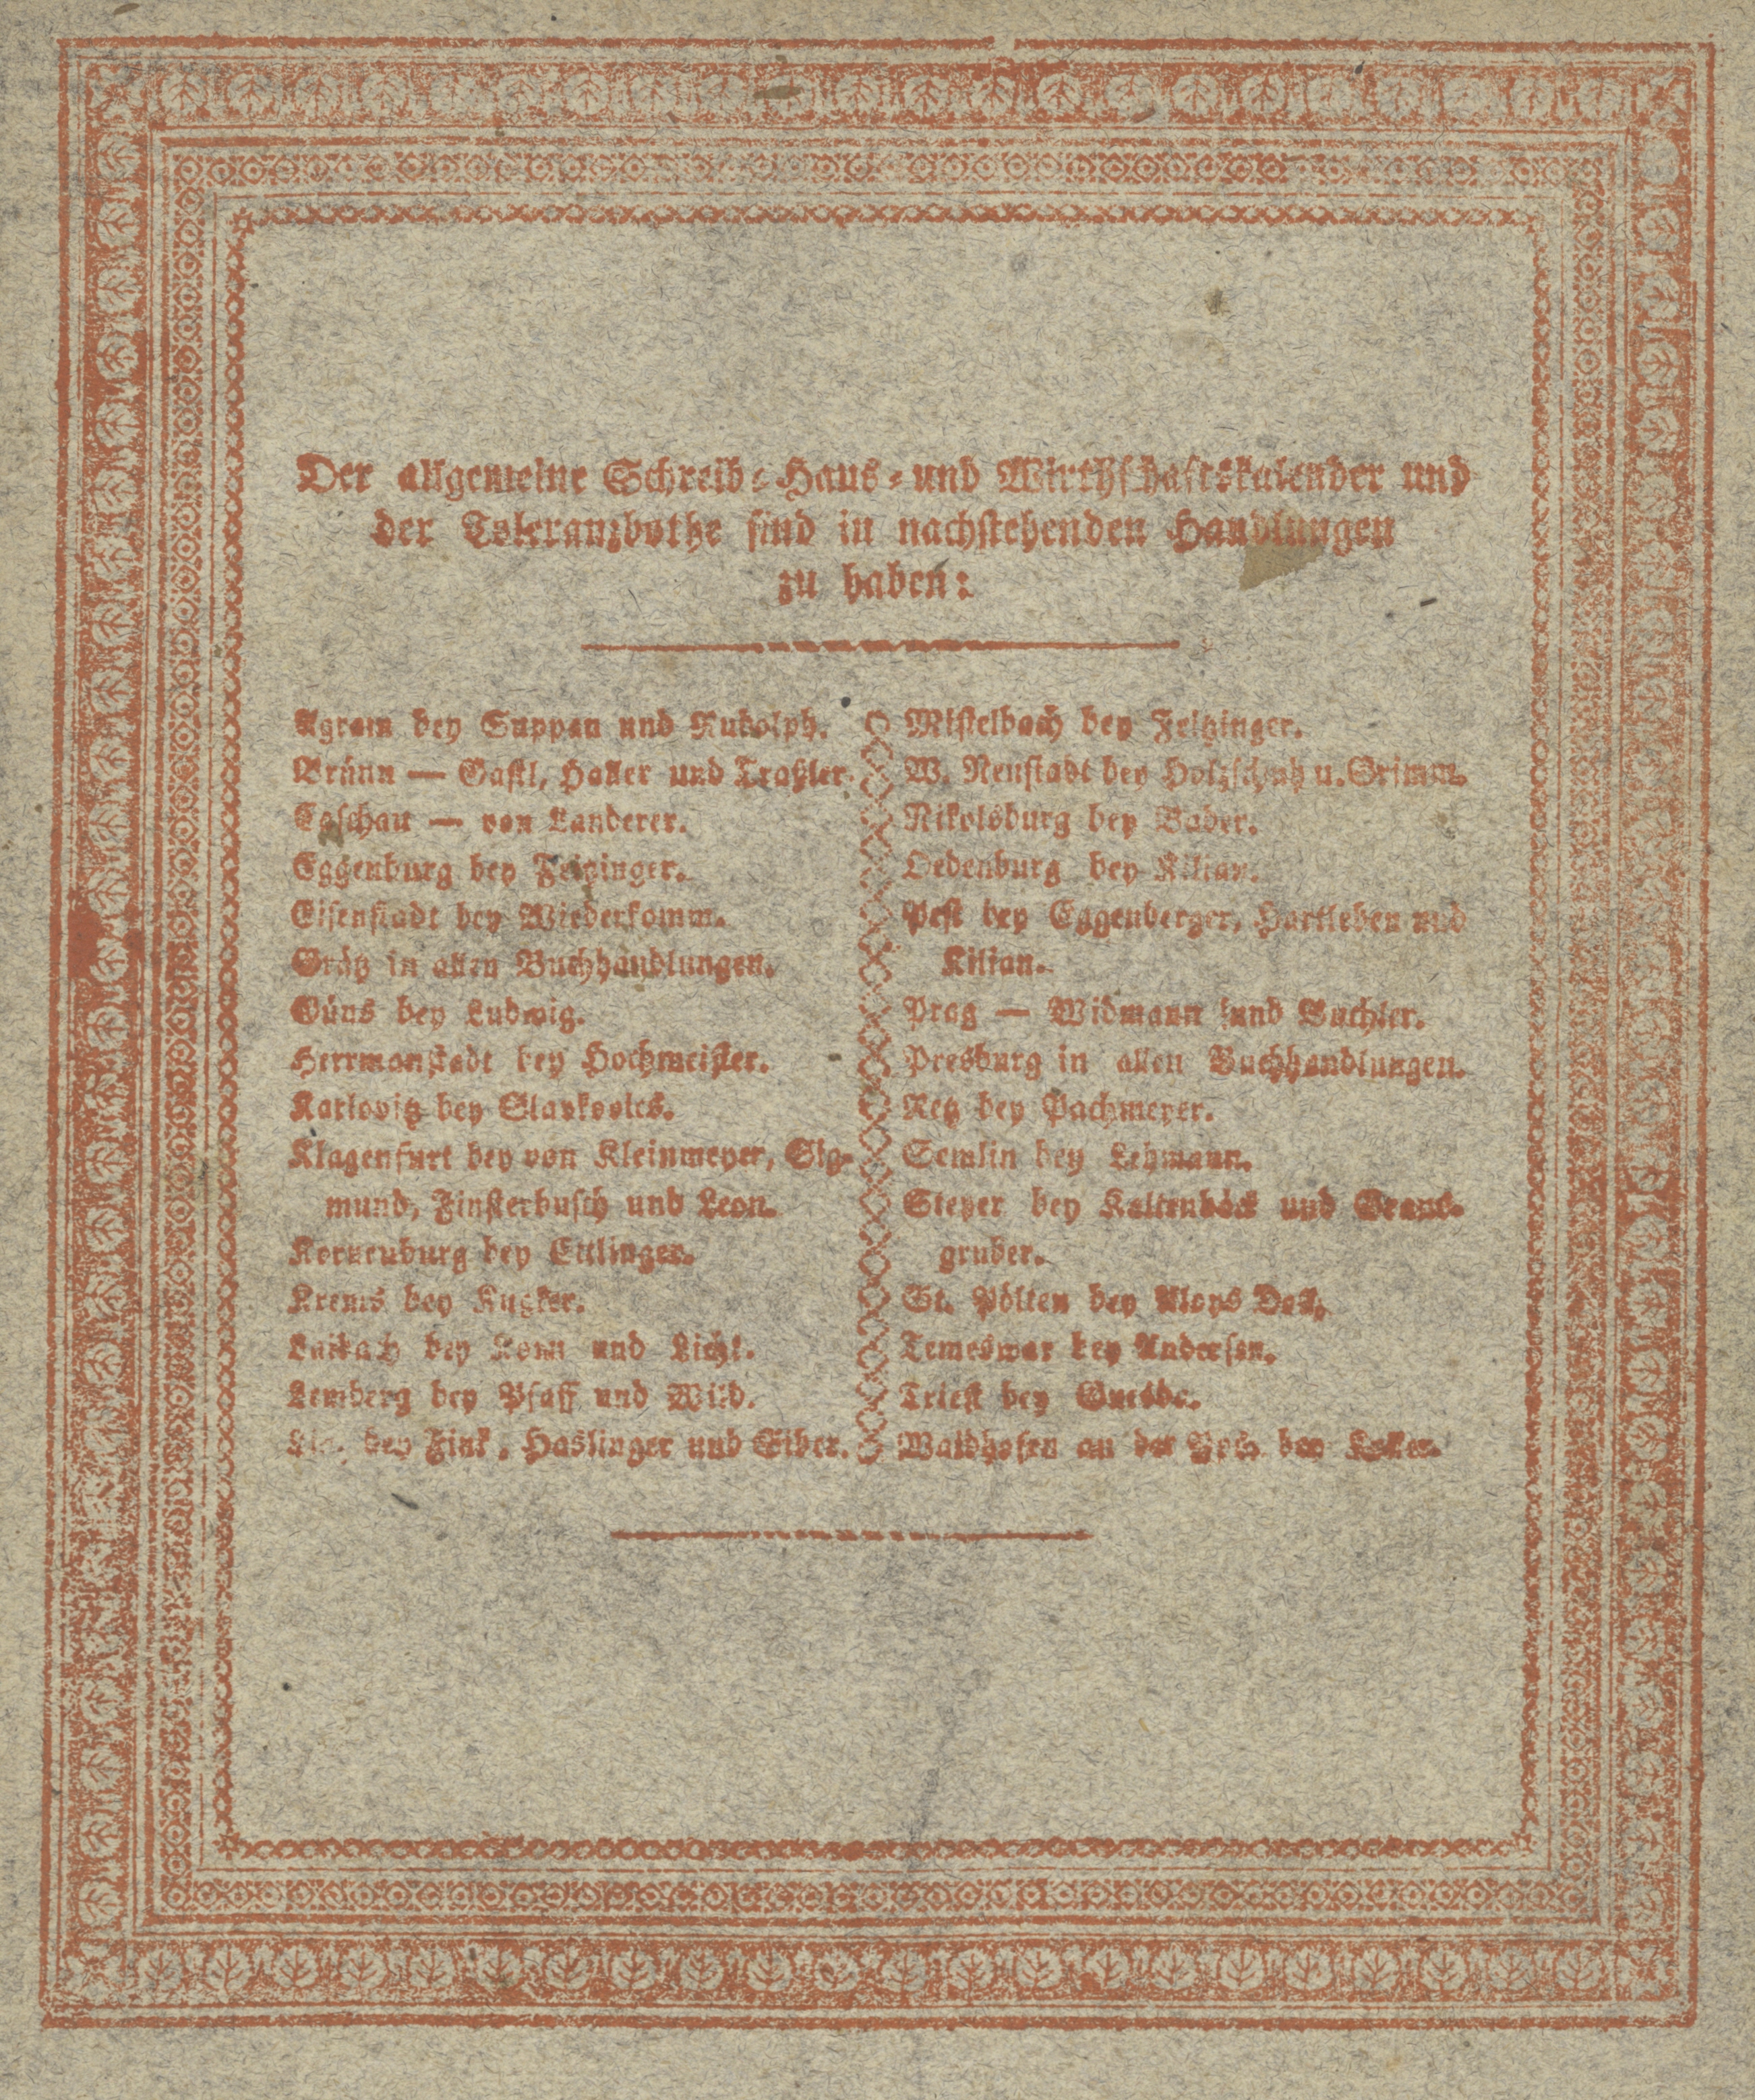 Der allgemeine Schreib-Haus-und Wirthschaftskalender und
der Toleranzbothe sind in nachstehenden Handlungen
zu haben:
Agram bey Suppan und Rudolph.
Brünn — Gastl, Haller und Traßler.
Caschau — von Landerer.
Eggenburg bey Felzinger.
Eisenstadt bey Wiederkomm.
Grätz in allen Buchhandlungen.
Güns bey Ludwig.
Herrmanstadt bey Hochmeister.
Karlovitz bey
Klagenfurt bey von Kleinmeyer, Sig-
mund, Finsterbusch und Leon.
Korneuburg bey Ettlinger.
Krems bey
Laibach bey Korn und Licht.
Lemberg bey Pfaff und Wild.
bey Fink, Haslinger und
Mistelbach bey Felzinger.
W. Neustadt bey u. Grimm.
Nikolsburg bey Bader.
Oedenburg bey Kilian.
Pest bey Eggenberger, Hartleben und
Kilian.
Prag — Widmann und Buchler.
Presburg in allen Buchhandlungen.
Retz bey Pachmeyer.
Semlin bey Lehmann.
Steyer bey Kaltenböck und
gruber.
St. Pölten bey Aloys
Temeswar bey Andersen.
Triest bey
Waidhofen an der bey